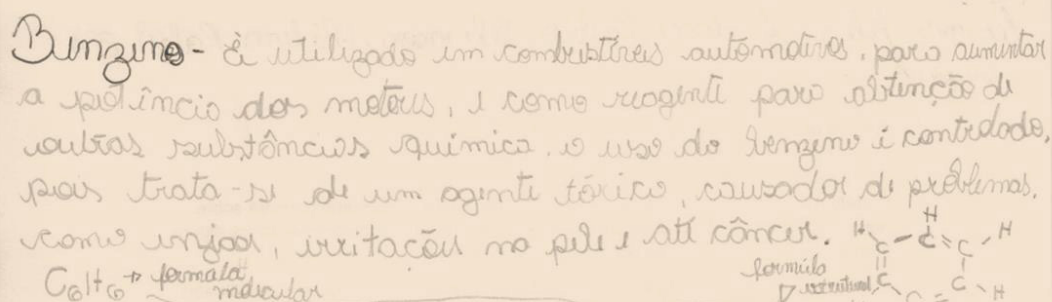 Benzeno - É utilizado em combustíveis automotivos, para aumentar
a potência dos motores, e como reagente para obtenção de
outras substâncias química, o uso do benzeno é controlado,
pois trata-se de um agente tóxico, causador de problemas,
como enjoos, irritação na pele e até câncer.
C6H6 → formula molecular
formúla estrutural
H H H
C C C
C C H